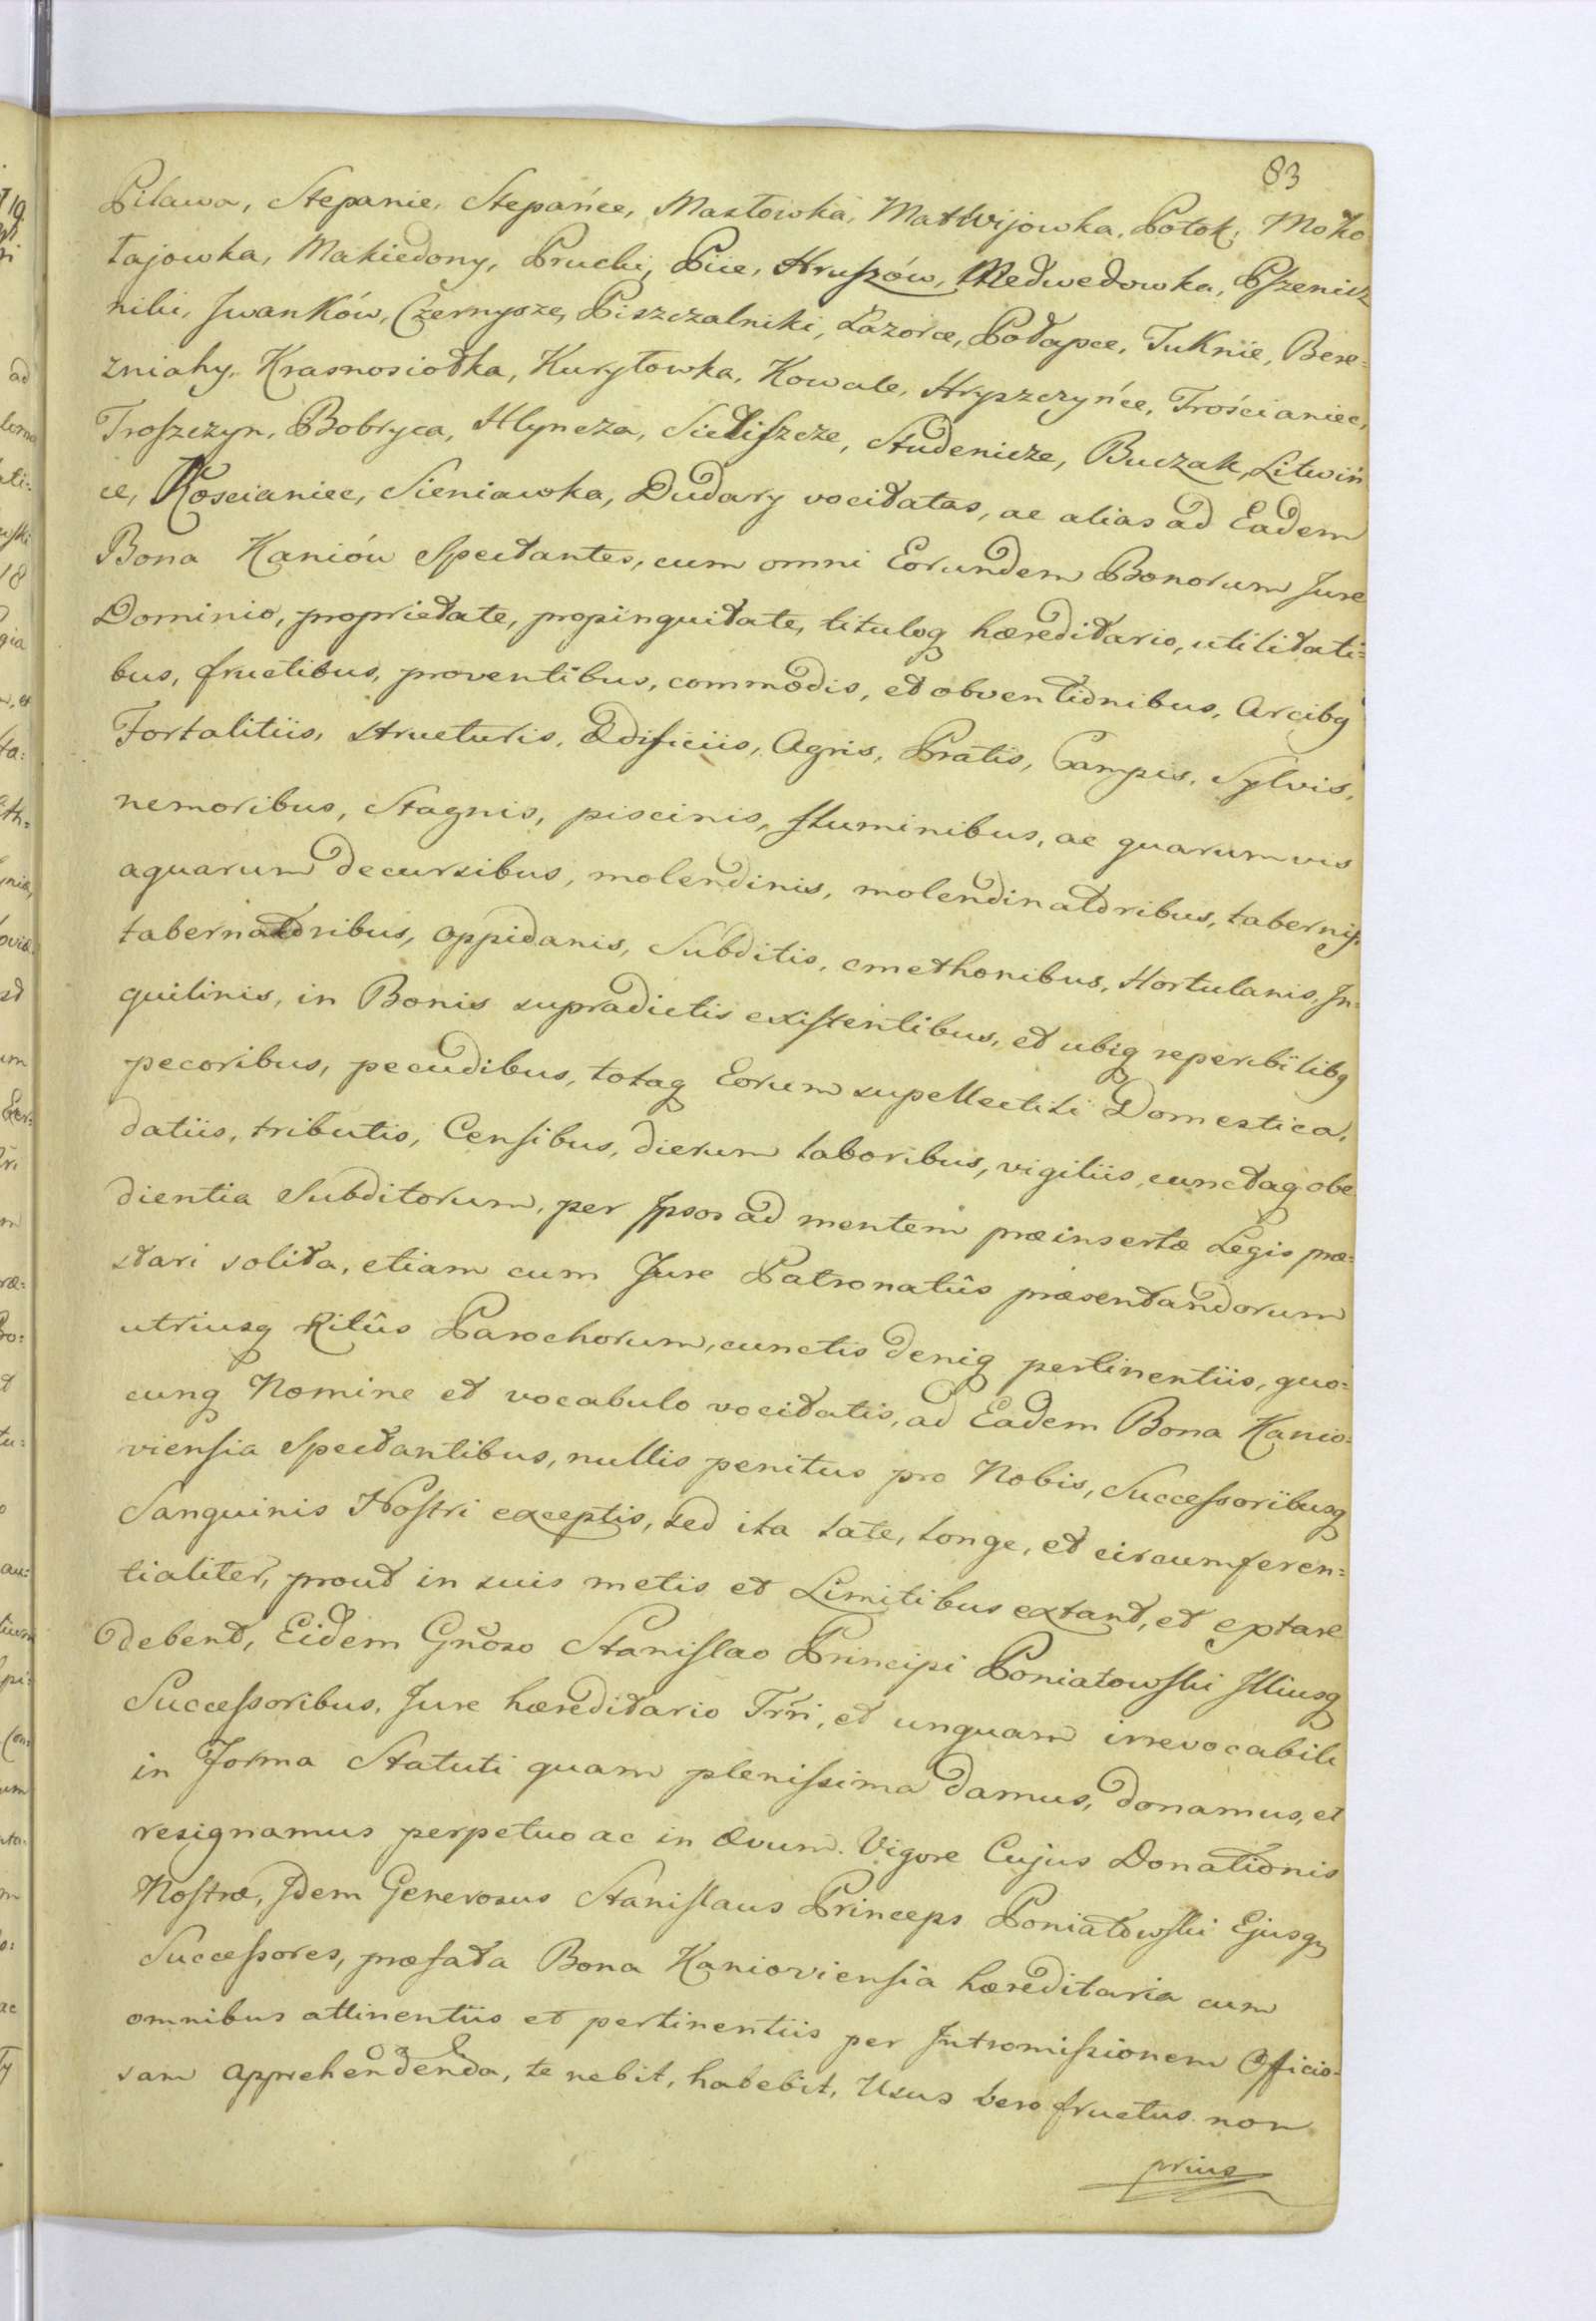 83
Pilawa, Stepanie, Stepańce, Masłowka, Matwijowka, Potok, Moko
łajowka, Makiedony, Pruchi, Piie, Hruszów, Medwedowka, Pszenicz
niki, Iwanków, Czernysze, Piszczalniki, Łazorce, Potapce, Tuknie, Bere=
zniahy, Krasnosiołka, Kuryłowka, Kowale, Hryszczyńce, Trościaniec,
Troszczyn, Bobryca, Hlyncza, Siedliszcze, Studenicze, Buczak, Litwiń
ce, Koscianiec, Sieniawka, Dudary vocitatas, ac alias ad Eadem
Bona Kaniów Spectantes, cum omni Eorundem Bonorum Jure
Dominio, proprietate, propinquitate, tituloq hæreditario, utilitati=
bus, fructibus, proventibus, commodis, et obventionibus, Arcibq
Fortalitiis, structuris, Ædificiis, Agris, Pratis, Campis, Sylvis,
nemoribus, Stagnis, piscinis, fluminibus, ac quarumvis
aquarum decursibus, molendinis, molendinatoribus, tabernis,
tabernatoribus, oppidanis, Subditis, cmethonibus, Hortulanis, In=
quilinis, in Bonis supradictis existentibus, et ubiq reperibilibq
pecoribus, pecudibus, totaq Eorum supellectili Domestica,
datiis, tributis, Censibus, dierum laboribus, vigiliis, cunctaq obe
dientia Subditorum, per Ipsos ad mentem præinsertæ Legis præ=
stari solita, etiam cum Jure Patronatûs præsentandorum
utriusq Ritûs Parochorum, cunctis deniq pertinentiis, quo=
cunq Nomine et vocabulo vocitatis, ad Eadem Bona Kanio=
viensia Spectantibus, nullis penitus pro Nobis, Successoribusq
Sanguinis Nostri exceptis, sed ita late, longe, et circumferen=
tialiter, prout in suis metis et Limitibus extant, et extare
debent, Eidem Gnoso Stanislao Principi Poniatowski Illiusq
Successoribus, Jure hæreditario Trri, et unquam irrevocabili
in Forma Statuti quam plenissima damus, donamus, et
resignamus perpetuo ac in ævum. Vigore Cujus Donationis
Nostræ, Idem Generosus Stanislaus Princeps Poniatowski Ejusq
Successores, præfata Bona Kanioviensia hæreditaria cum
omnibus attinentiis et pertinentiis per Intromissionem Officio=
sam apprehendenda, tenebit, habebit, Usus vero fructus non
prius